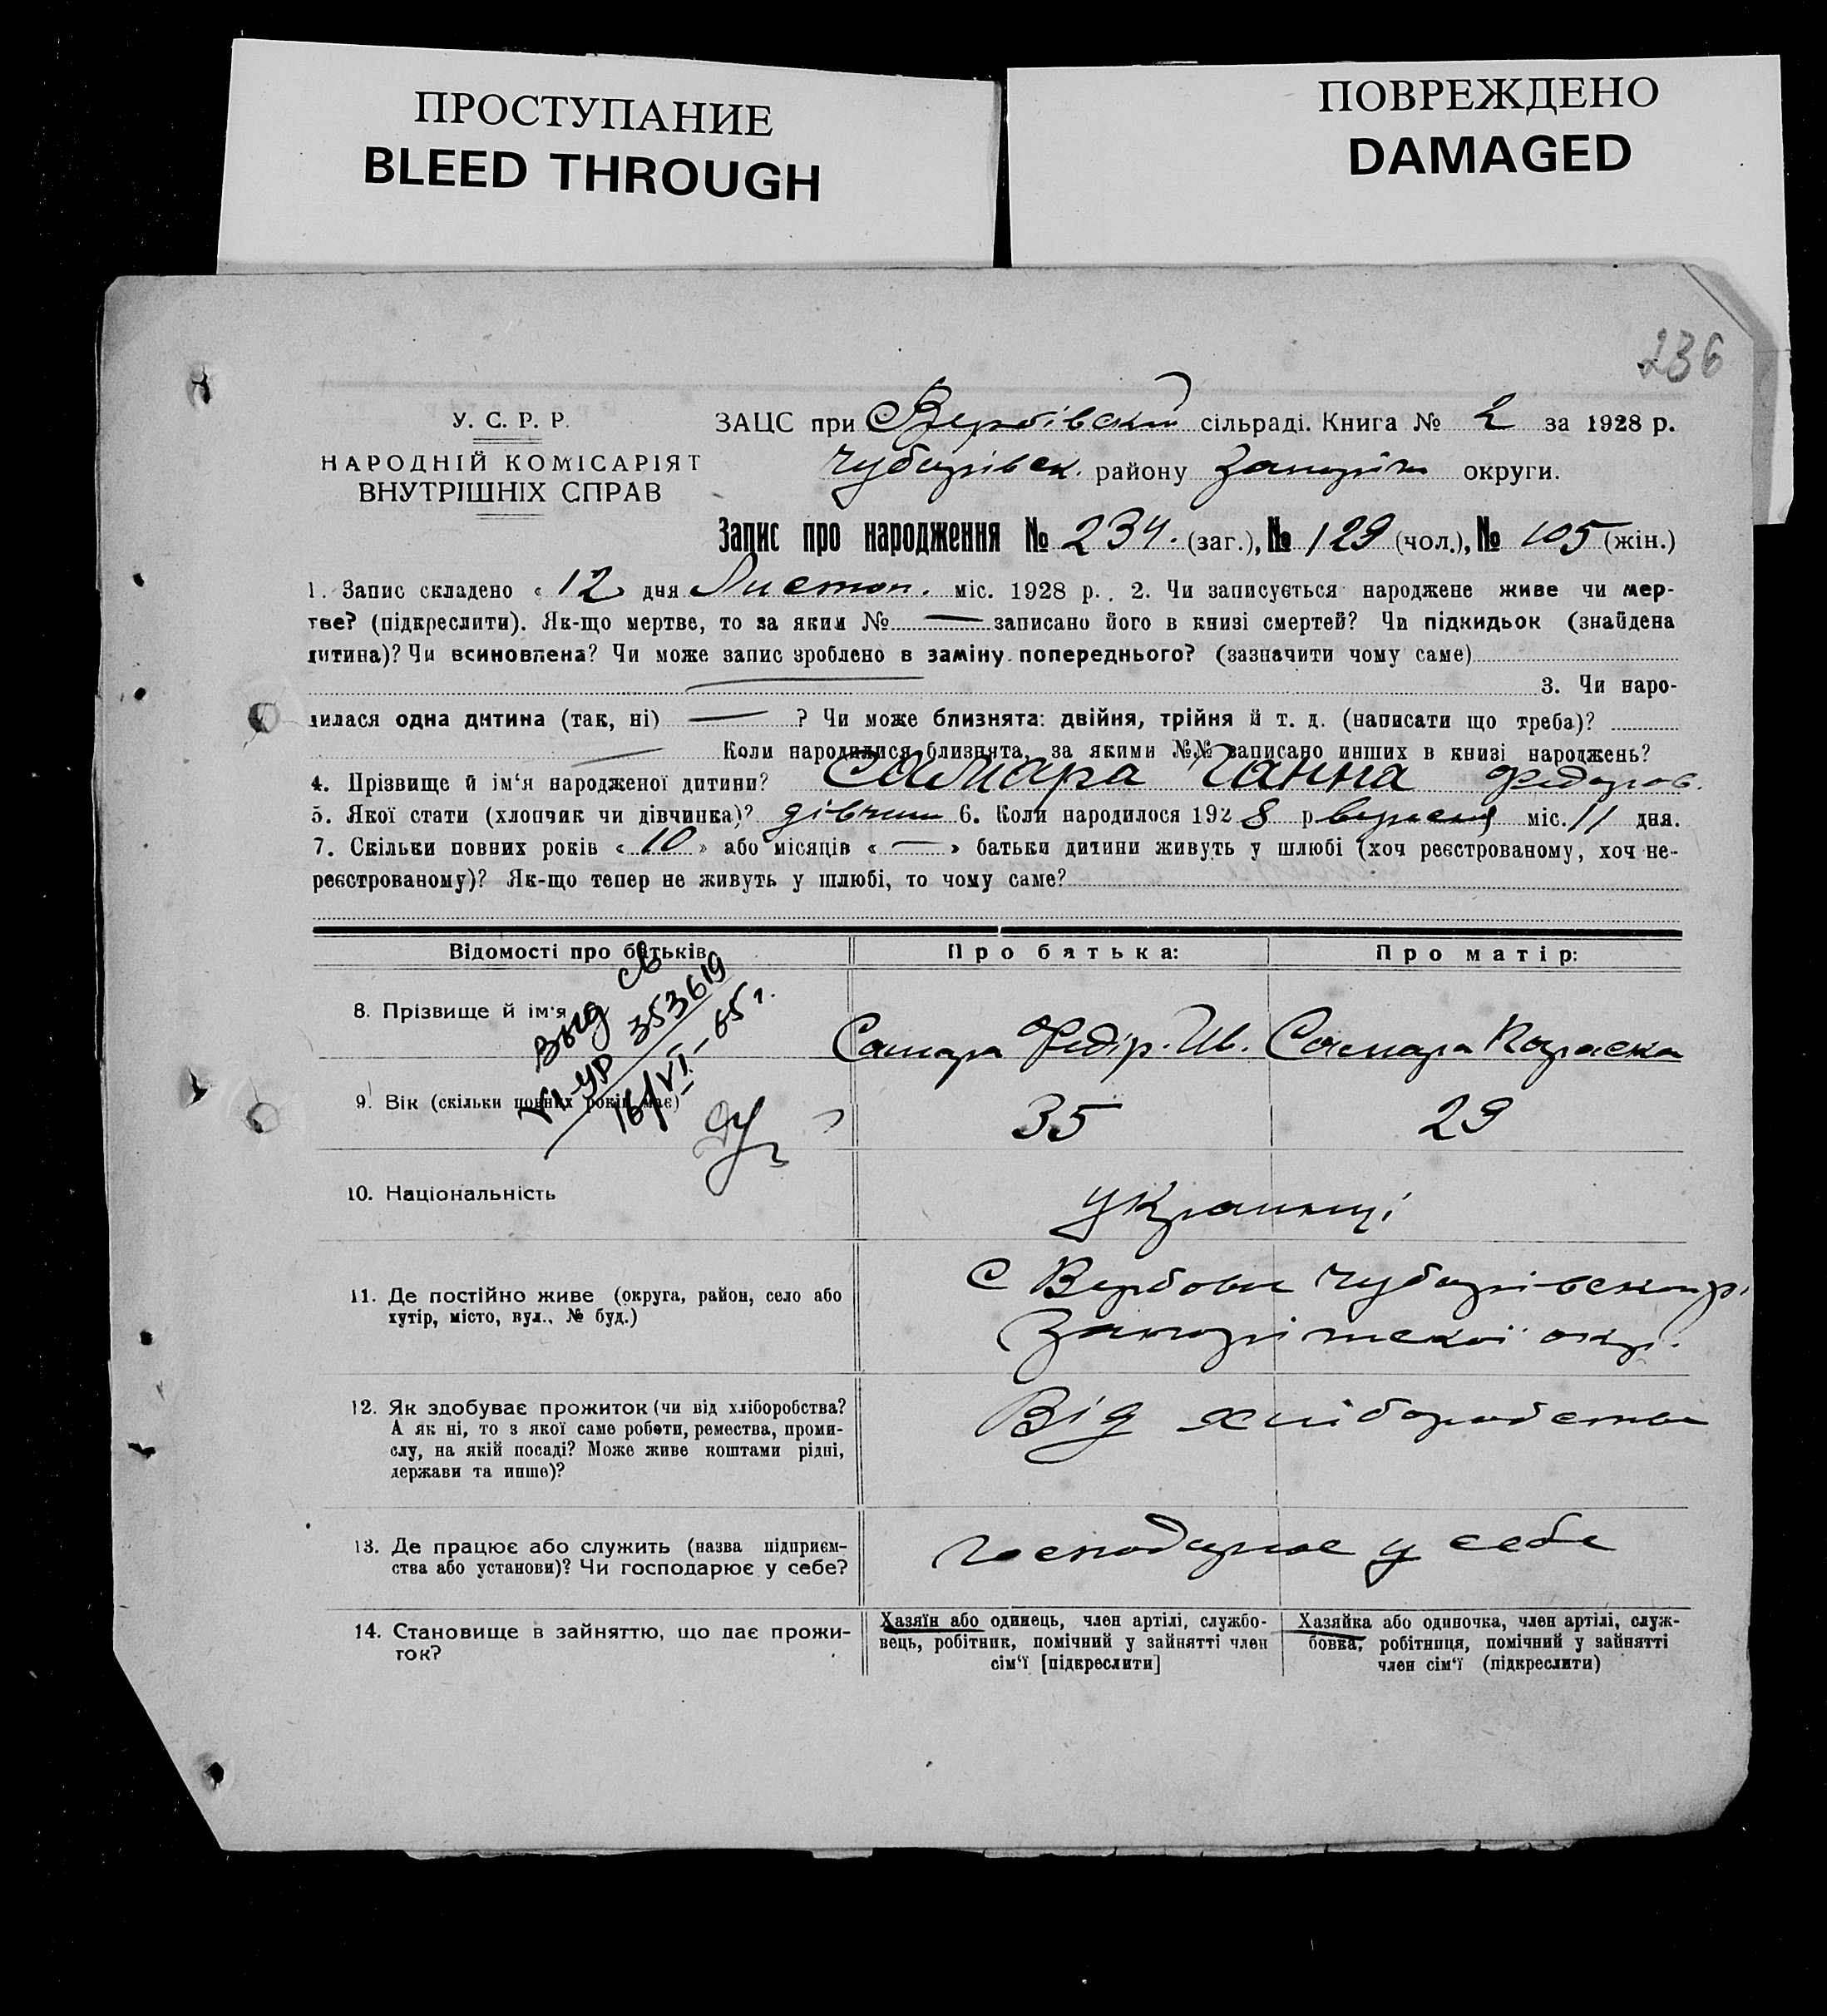 ПРОСТУПАНИЕ
BLEED THROUGH
ПОВРЕЖДЕНО
DAMAGED
236
У. С. Р. Р.
НАРОДНІЙ КОМІСАРІЯТ
ВНУТРІШНІХ СПРАВ
ЗАЦС при Вербівській сільраді. Книга № 2 за 1928 р.
Чубарівськ. району Запоріж округи.
Запис про народження № 234. (заг.), № 129 (чол.), № 105 (жін.)
1. Запис складено « 12 дня Листоп. міс. 1928 р. 2. Чи записується народжене живе чи мер-
тве? (підкреслити). Як-що мертве, то за яким № — записано його в книзі смертей? Чи підкидьок (знайдена
дитина)? Чи всиновлена? Чи може запис зроблено в заміну попереднього? (зазначити чому саме)
3. Чи наро-
дилася одна дитина (так, ні) — ? Чи може близнята: двійня, трійня й т. д. (написати що треба)?
— Коли народилися близнята, за якими №№ записано инших в книзі народжень?
4. Прізвище й ім‘я народженої дитини? Самара Ганна Федоров.
5. Якої стати (хлопчик чи дівчинка)? дівчин 6. Коли народилося 1928 р вересня міс. 11 дня.
7. Скільки повних років « 10 » або місяців « — » батьки дитини живуть у шлюбі (хоч реєстрованому, хоч не-
реєстрованому)? Як-що тепер не живуть у шлюбі, то чому саме?
Відомості про батьків
Про батька:
Про матір:
выд св
VI-УР 353619
16/VI-65 г.
8. Прізвище й ім‘я
Самара Федір. Ів.
Самара Параска
9. Вік (скільки повних років має)
35
29
10. Національність
українці
11. Де постійно живе (округа, район, село або
хутір, місто, вул., № буд.)
С Вербове Чубарівськ р.
Запоріжської окр.
12. Як здобуває прожиток (чи від хліборобства?
А як ні, то з якої саме роботи, ремества, проми-
слу, на якій посаді? Може живе коштами рідні,
держави та инше)?
Від хліборобства
13. Де працює або служить (назва підприєм-
ства або установи)? Чи господарює у себе?
господарює у себе
14. Становище в зайняттю, що дає прожи-
ток?
Хазяїн або одинець, член артілі, службо-
вець, робітник, помічний у зайнятті член
сім‘ї [підкреслити]
Хазяйка або одиночка, член артілі, служ-
бовка, робітниця, помічний у зайнятті
член сім‘ї (підкреслити)